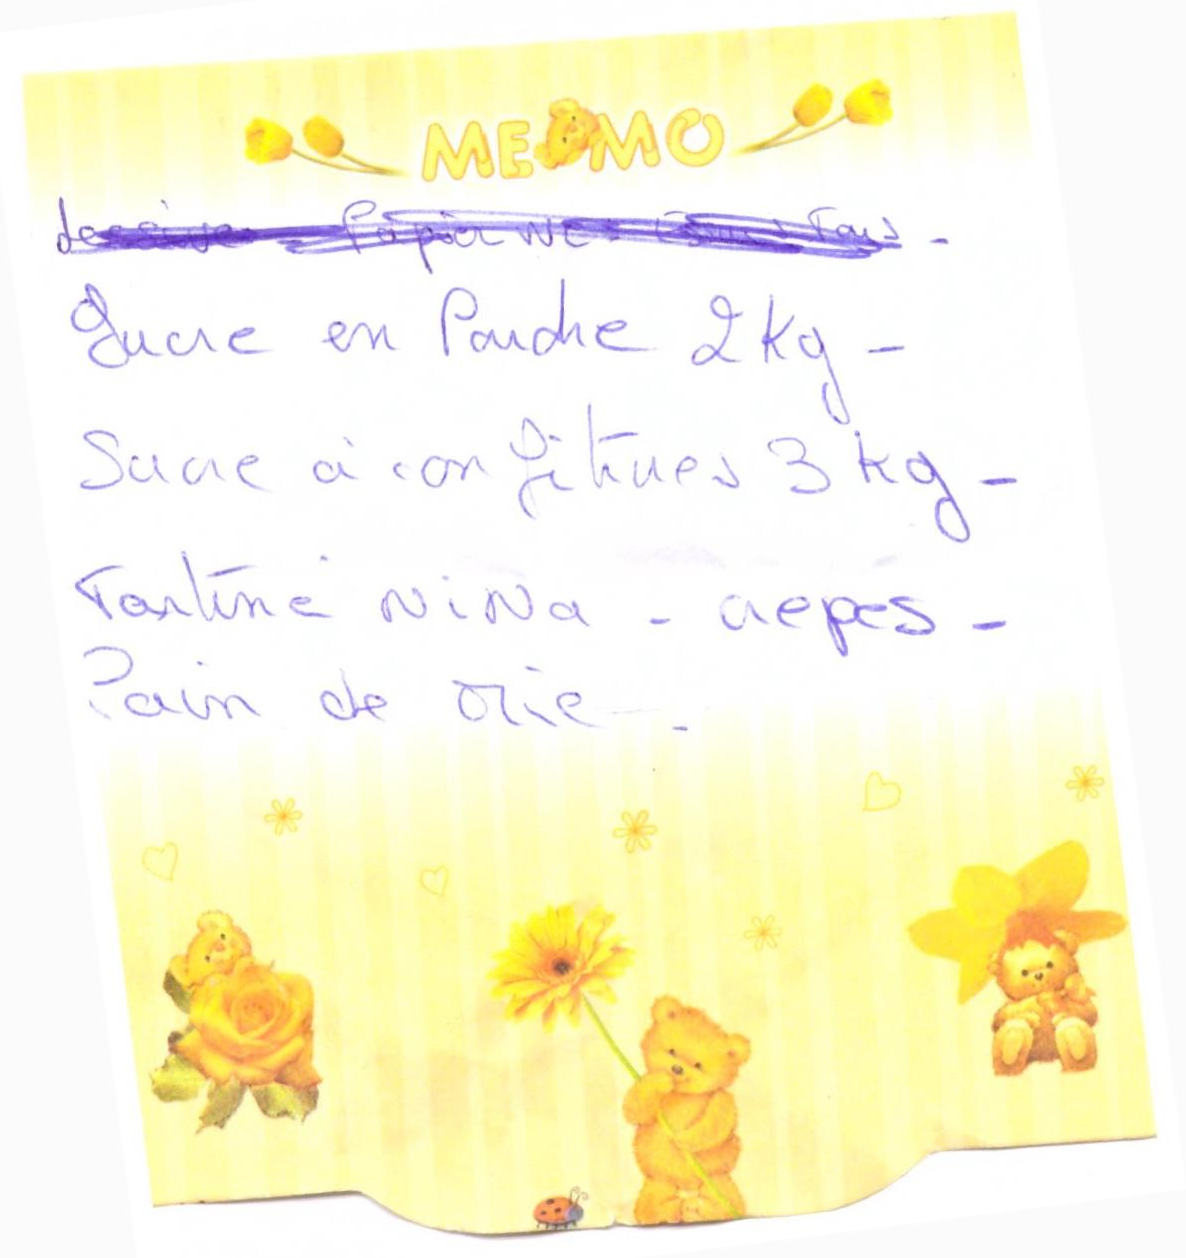 MEMO
Papier WC
Sucre en Poudre 2 Kg -
Sucre à confitures 3 kg -
Tartine NiNa - crepes -
Pain de mie - .